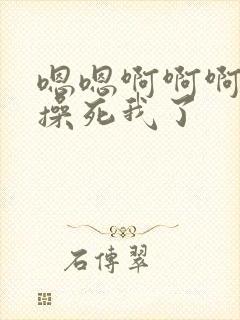 嗯嗯啊啊啊
操死我了
石傳翠